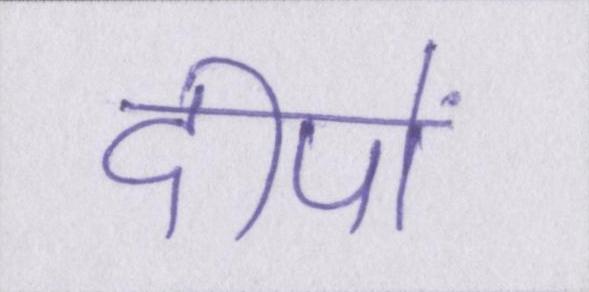 दीपों